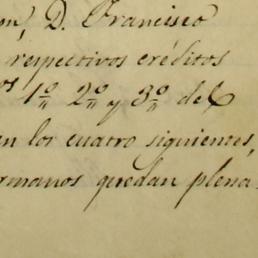 on, D. Francisco
respectivos créditos
os 1º 2º y 3º del
en los cuatro siguientes,
rmanos quedan plena